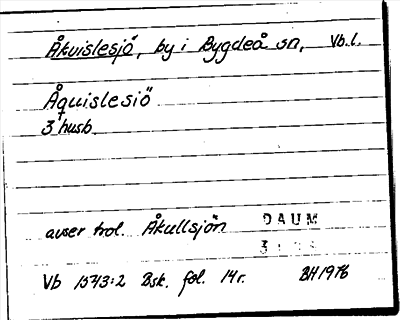 Åkvislesjö, by i Bygdeå sn, Vb.l.
Åquislesiö
3 husb
avser trol. Åkullsjön DAUM
Vb 1543:2 Bsk. fol. 14r. BH 1976